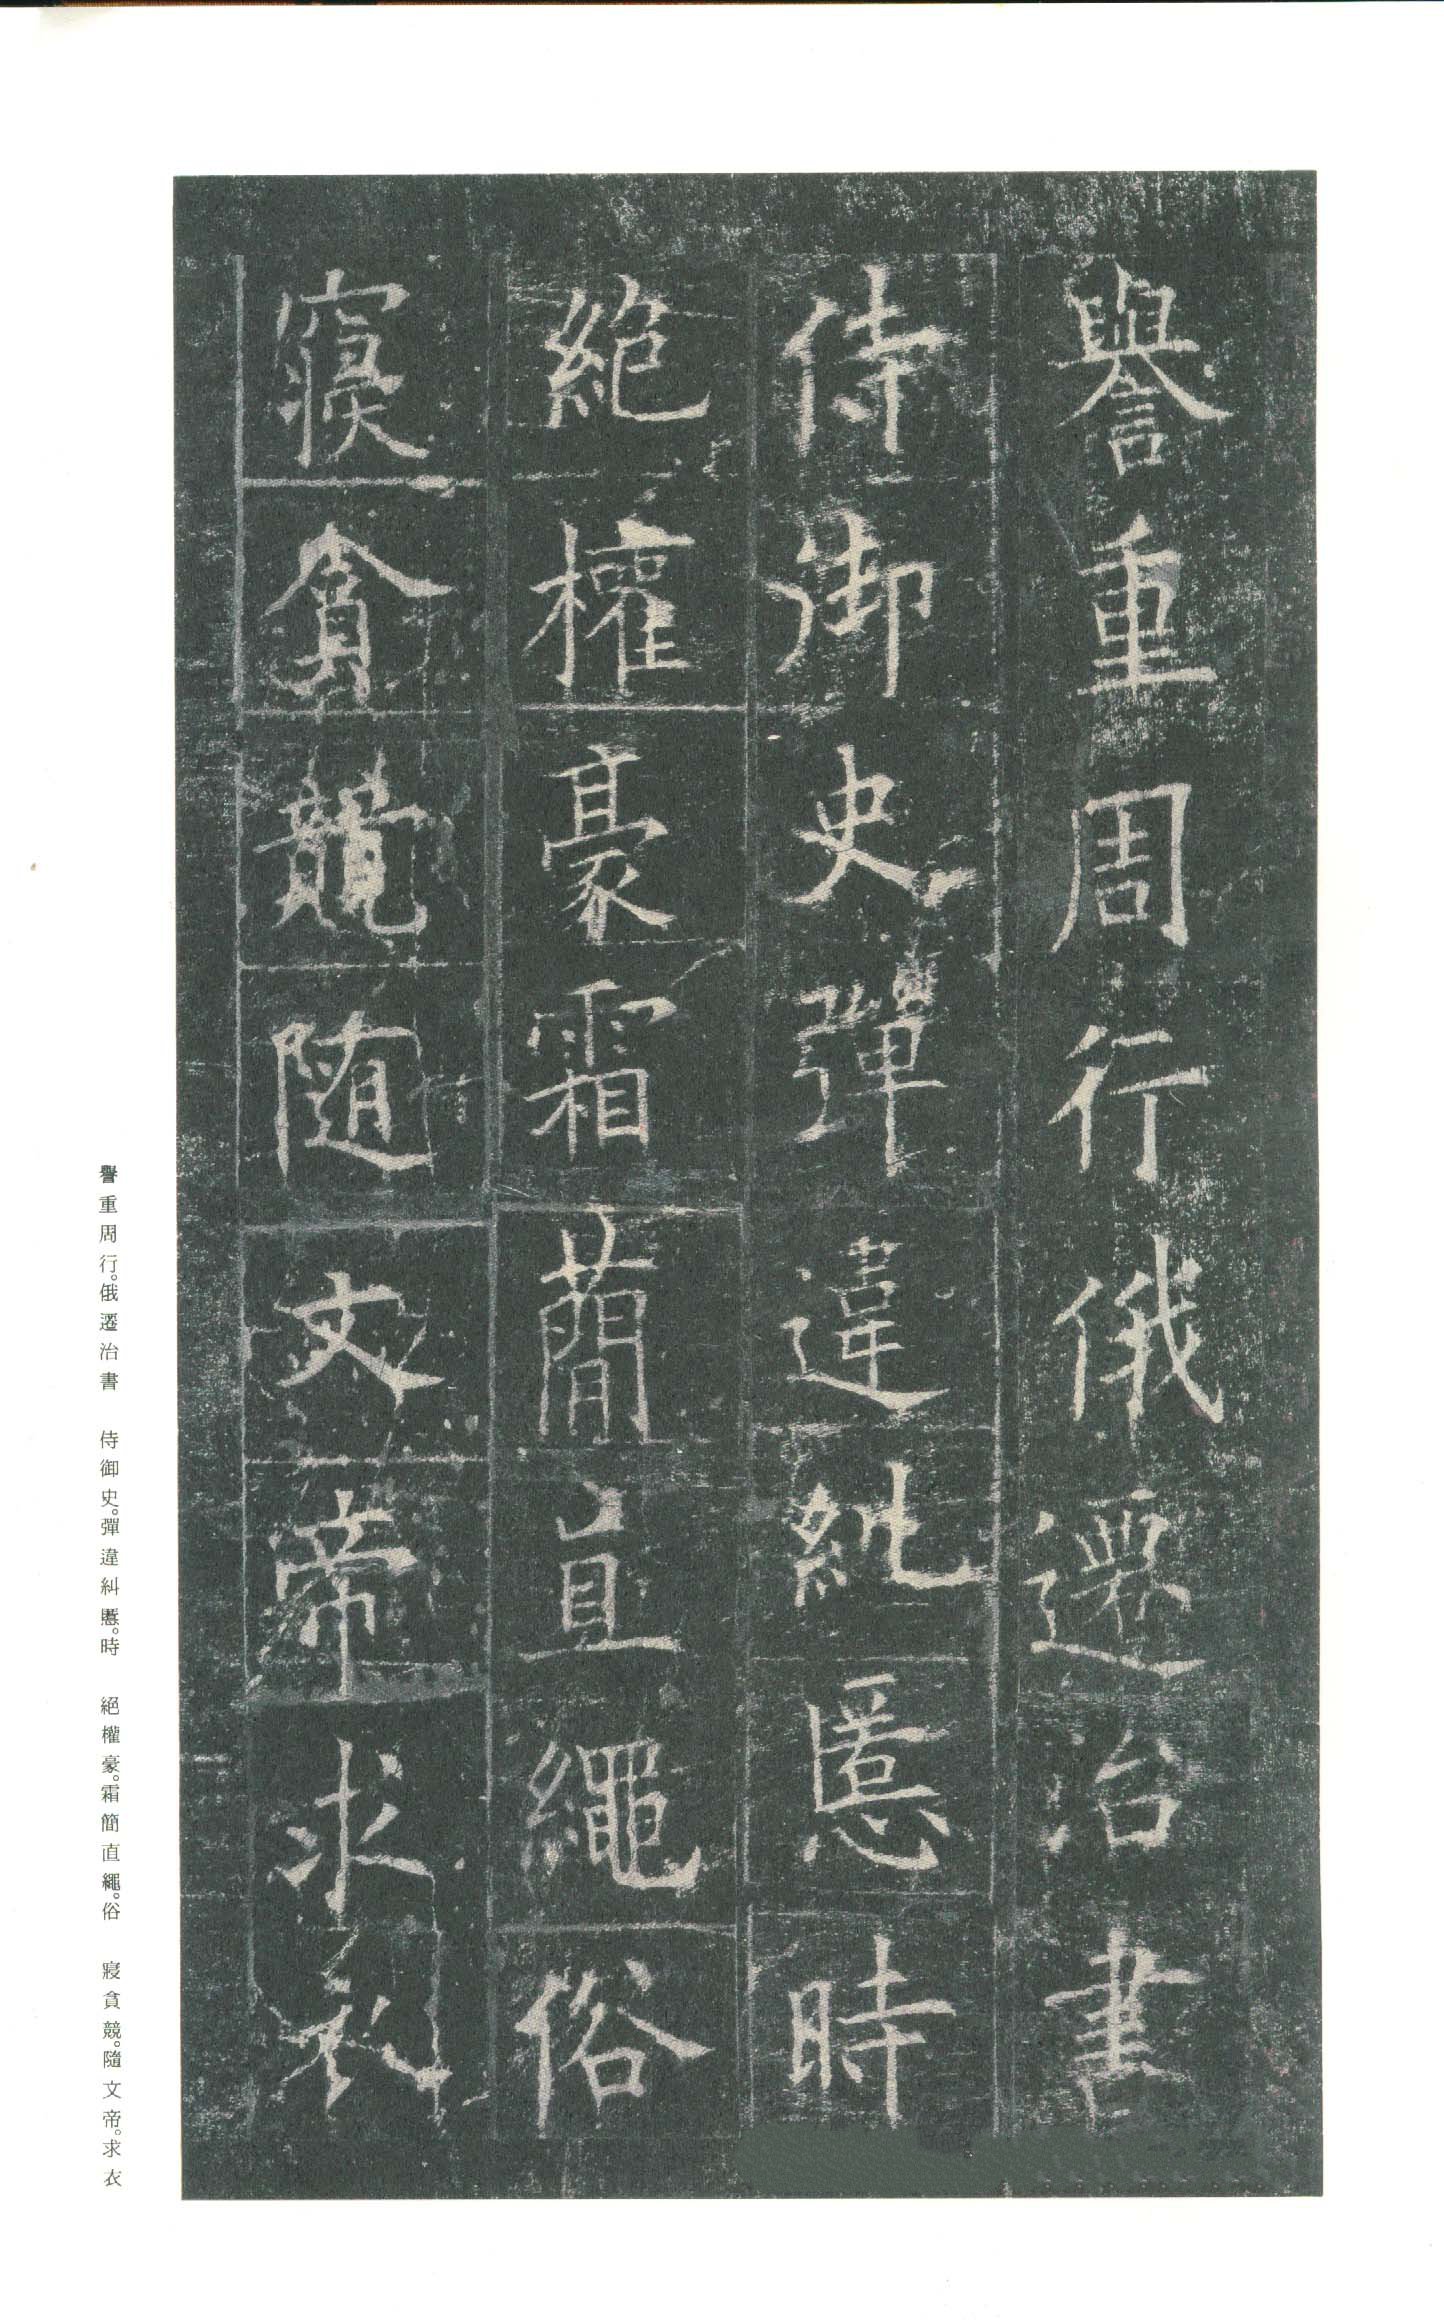 譽重周行俄遷治書
侍御史彈違糾慝時
絕權豪霜簡直繩俗
寢貪競隨文帝求衣
譽重周行。俄遷治書　侍御史。彈違糾慝。時　絕權豪。霜簡直繩。俗　寢貪競。隨文帝。求衣